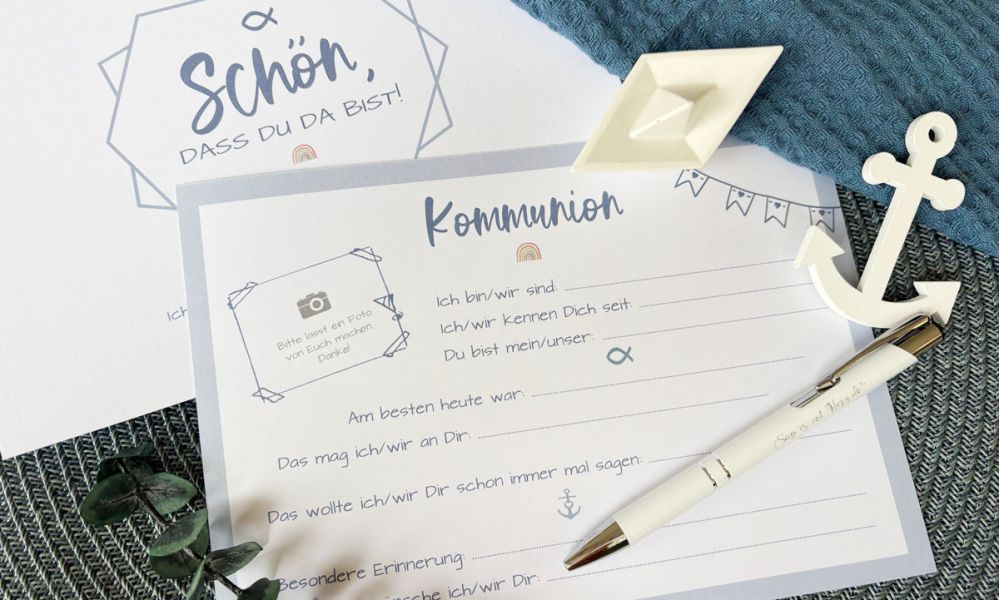 Schön,
DASS DU DA BIST!
Ich
Kommunion
Bitte lasst ein Foto
von Euch machen.
Danke!
Ich bin/wir sind:
Ich/wir kennen Dich seit:
Du bist mein/unser:
Am besten heute war:
Das mag ich/wir an Dir:
Das wollte ich/wir Dir schon immer mal sagen:
Besondere Erinnerung:
ich/wir Dir: